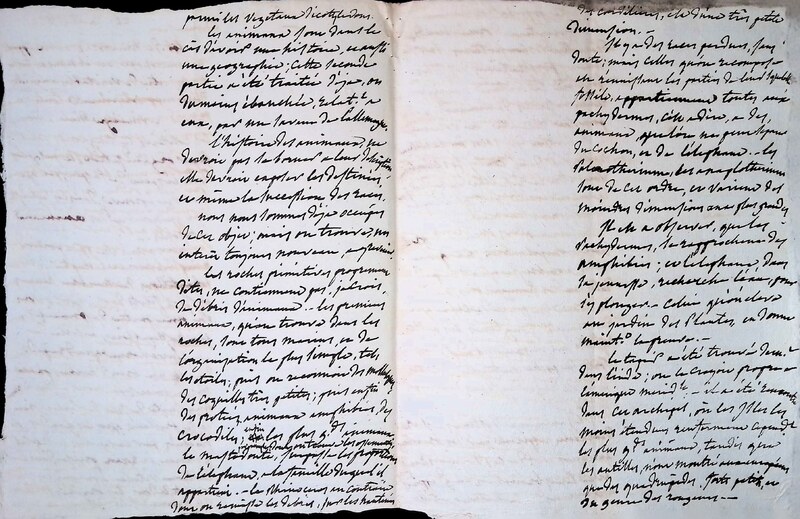 parmi les végétaux dicotylédons.
les animaux sont dans le
cas d'avoir une histoire, et aussi
une géographie; cette seconde
partie a été traitée déjà, ou
du moins ébauchée, relat.t a
eux, par un savant de l'allemagne.
l'histoire des animaux, ne
devroit pas se borner a leur description
elle devroit exposer les destinées,
et même la succession des races.
nous nous sommes déja occupés
de cet objet; mais on trouve, nos
toujours nouveau, a
les roches primitives proprement
dites, ne contiennent pas, je crois,
de débris d'animaux. - les premiers
animaux, qu'on trouve dans les
roches, sont tous marins, et de
l'organisation la plus simple, tels
les étoiles; puis on reconnoit des mollusques
des coquilles très petites; puis enfin
des protées, animaux amphibies, des
crocodiles; enfin les plus g.ds animaux
le mastodonte, surpasse les proportions
de l'éléphant, a la famille duquel il
appartient. - le rhinoceros en contrées
dont on retrouve les débris, sur les hauteurs
des cordilières, est d'une très petite
dimension. -
Il y a des races perdues, sans
doute; mais celles qu'on recompose
en réunissant les parties de leur squelette
fossile, appartiennent toutes aux
pachydermes, c'est a dire, a des
animaux, que l'on ne peut séparer
du cochon, et de l'éléphant. - les
Palaeotherium, les anaplotherium
sont de cet ordre, et varient des
moindres dimensions aux plus grandes
Il est a observer, que les
Pachydermes, se rapprochent des
amphibies; et l'éléphant, dans
sa jeunesse, recherche l'eau, pour
s'y plonger. - Celui qu'on élève
au jardin des Plantes, en donne
maint.t la preuve. -
le tapir a été trouvé dern.t
dans l'inde; on le croyoit propre a
l'amérique merid.le - il a été rencontré
dans cet archipel, où les Isles les
moins étendues renferment cependant
les plus g.ds animaux, tandis que
les antilles, n'ont montré aux européens
que des quadrupèdes, forts petits, et
du genre des rongeurs. -